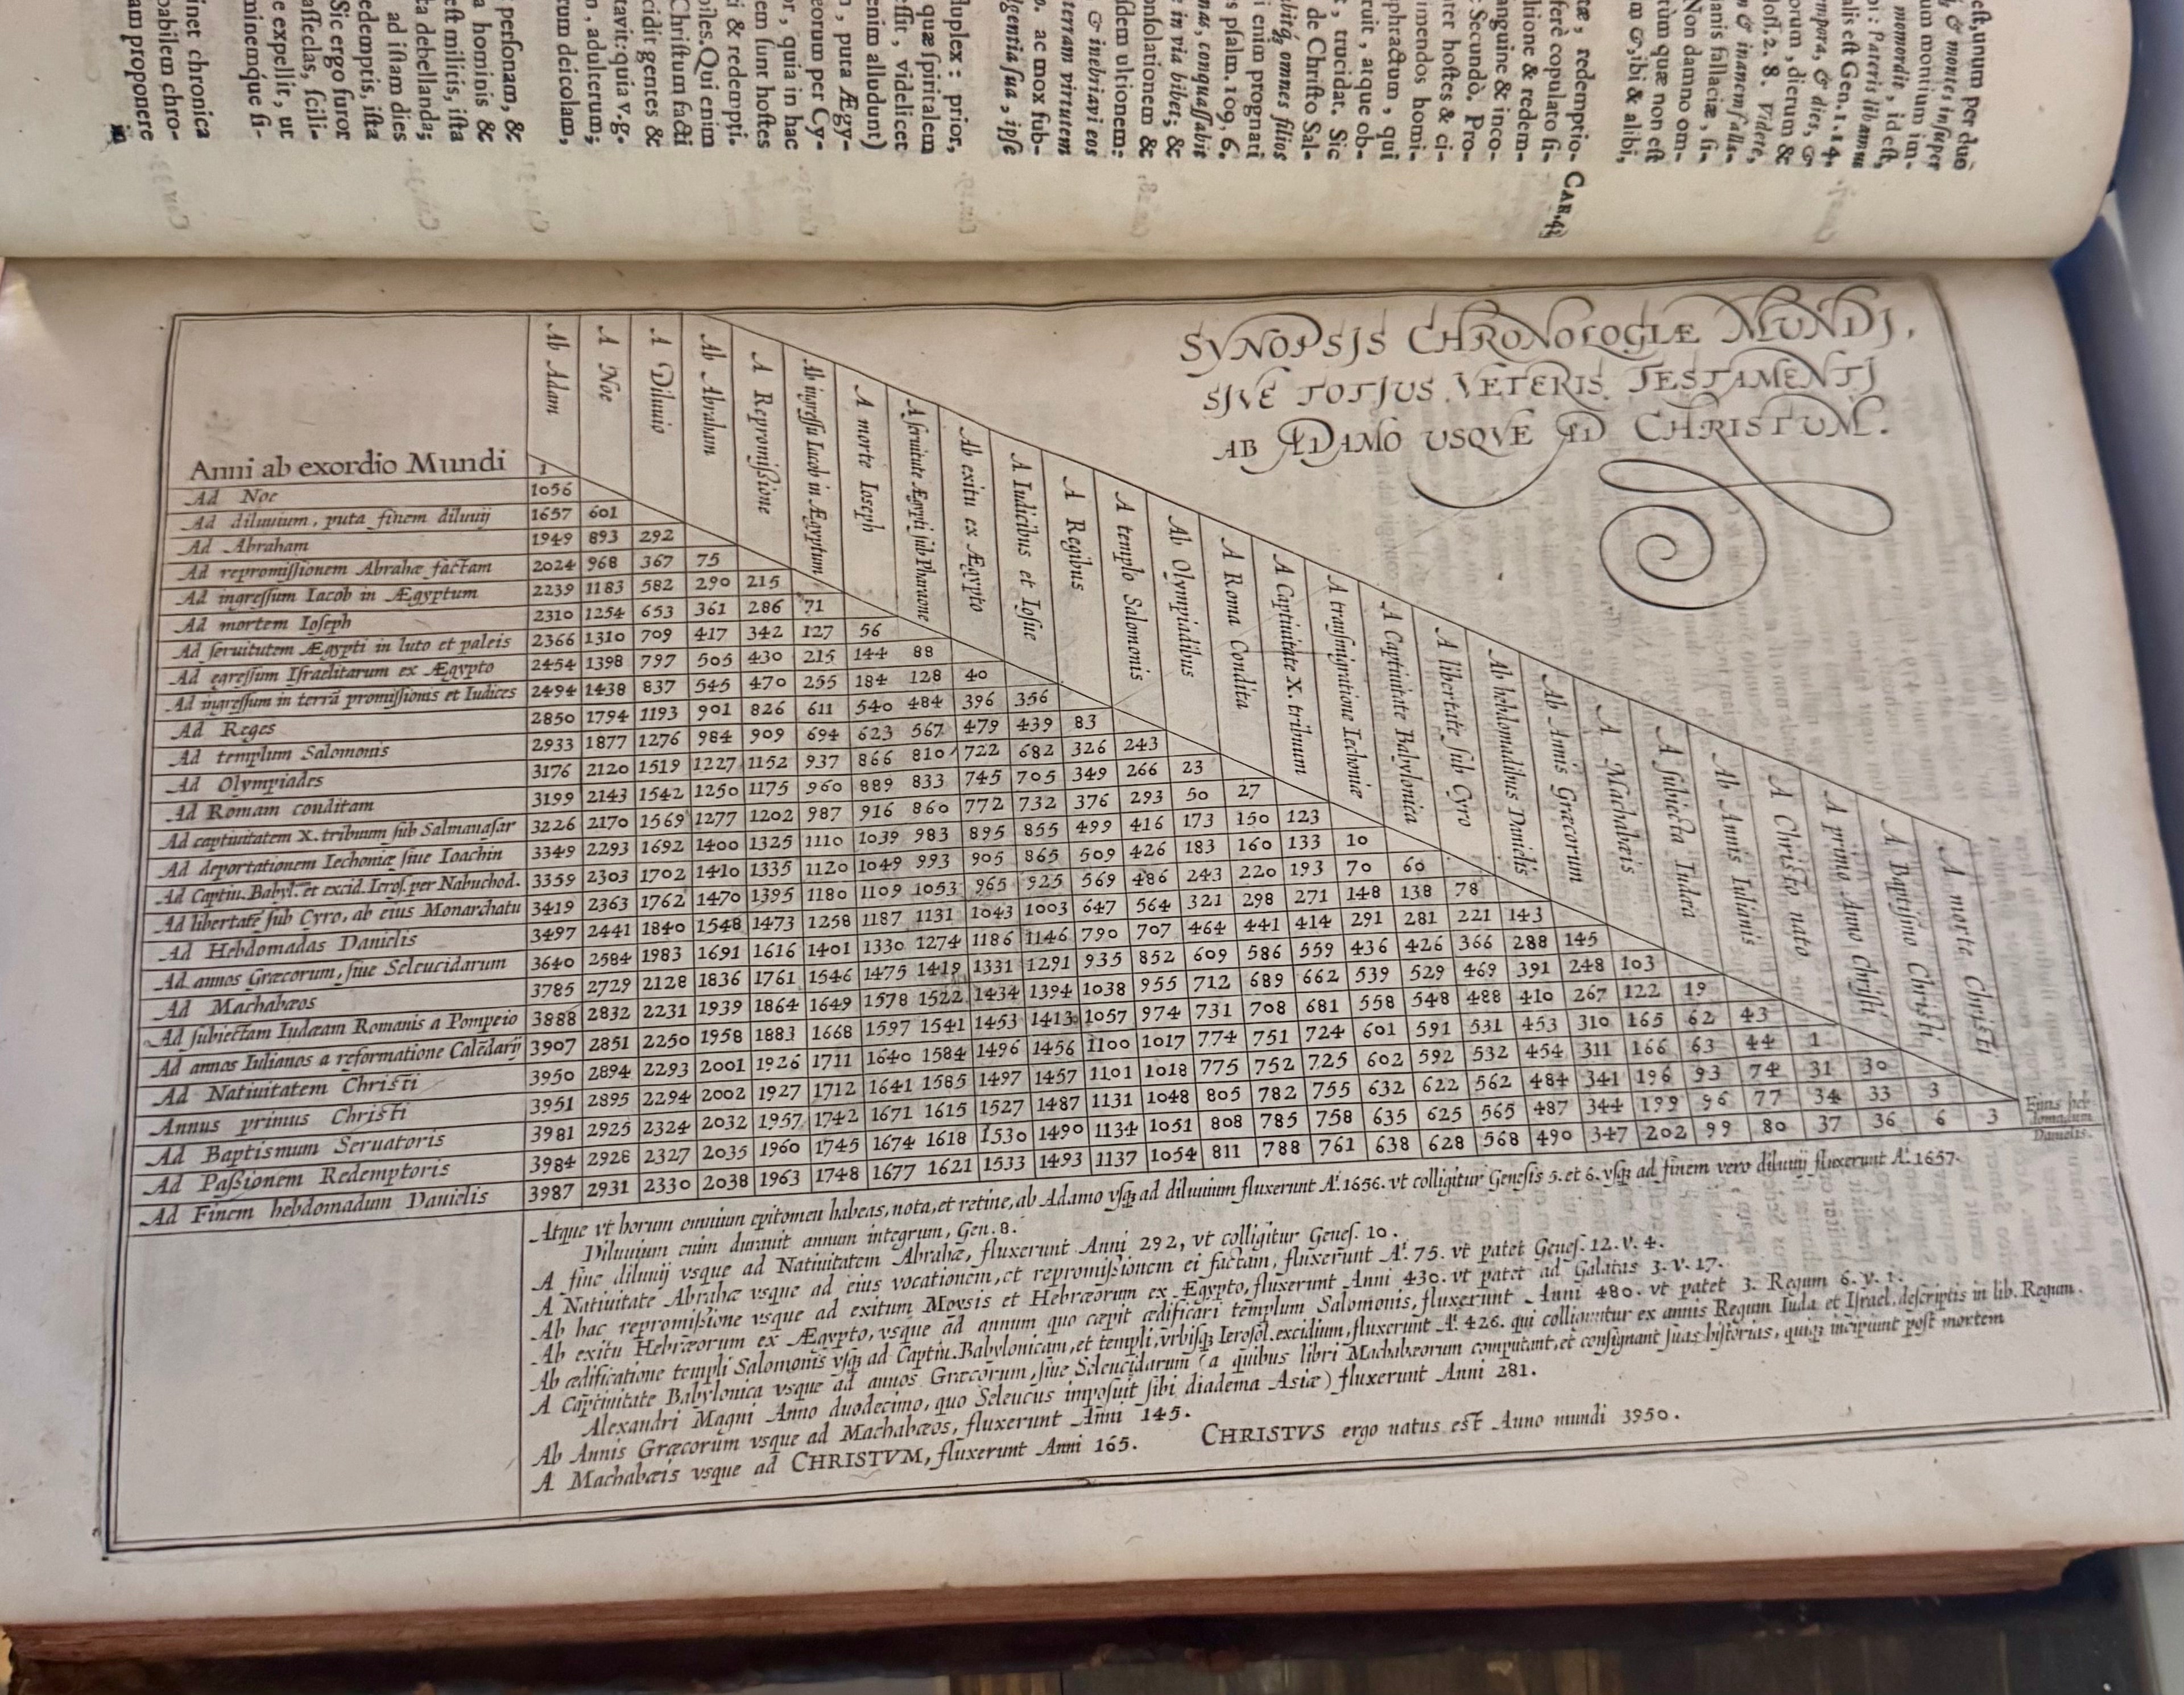 eſt, unum per duo
& montes inſuper
um montium im-
momordit, id eſt,
bi: Pateris libamus
alis eſt Gen. 1. 14.
mpora, & dies, &
orum, dierum &
loſſ. 2. 8. Videte,
m & inanem falla-
ianis fallaciæ, ſi-
Non damno om-
tùm quæ non eſt
m &, ibi & alibi,
tæ, redemptio-
CAP. 43
ferè copulato ſi-
litione & redem-
anguine & inco-
Secundò. Pro-
ter hoſtes & ci-
imendos homi-
phractum, qui
ruit, atque ob-
, trucidat. Sic
de Chriſto Sal-
abitq́, omnes filios
i enim prognati
s pſalm. 109, 6.
nas, conquaſſabit
e in via bibet; &
onſolationem &
ſdem ultionem:
& inebriavi eos
terram virtutem
. ac mox ſub-
lgentia ſua, ipſe
duplex: prior,
quæ ſpiritalem
eſſit, videlicet
enim alludunt)
, pura Ægy-
eorum per Cy-
or, quia in hac
em ſunt hoſtes
i & redempti.
biles. Qui enim
Chriſtum facti
cidit gentes &
tavit: quia v. g.
n, adulterum;
rum deicolam,
perſonam, &
a hominis &
eſt militis, iſta
ta debellanda;
ad iſtam dies
edemptis, iſta
Sic ergo furor
aſſeclas, ſcili-
e expellit, ut
minemq́ue ſi-
inet chronica
babilem chro-
am proponere
in
SYNOPSIS CHRONOLOGIÆ MUNDI,
SIVE TOTIUS VETERIS TESTAMENTI
AB ADAMO USQVE AD CHRISTUM.
Anni ab exordio Mundi
Ab Adam
A Noe
A Diluuio
Ab Abraham
A Repromiſsione
Ab ingreſſu Iacob in Ægyptum
A morte Ioſeph
A ſeruitute Ægypti ſub Pharaone
Ab exitu ex Ægypto
A Iudicibus et Ioſue
A Regibus
A templo Salomonis
Ab Olympiadibus
A Roma Condita
A Captiuitate X. tribuum
A tranſmigratione Iechoniæ
A Captiuitate Babylonica
A libertate ſub Cyro
Ab hebdomadibus Danielis
Ab Annis Græcorum
A Machabæis
A ſubiecta Iudæa
Ab Annis Iulianis
A Chriſto nato
A primo Anno Chriſti
A Baptiſmo Chriſti
A morte Chriſti
1
Ad Noe 1056
Ad diluuium, puta finem diluuij 1657 601
Ad Abraham 1949 893 292
Ad repromiſſionem Abrahæ factam 2024 968 367 75
Ad ingreſſum Iacob in Ægyptum 2239 1183 582 290 215
Ad mortem Ioſeph 2310 1254 653 361 286 71
Ad ſeruitutem Ægypti in luto et paleis 2366 1310 709 417 342 127 56
Ad egreſſum Iſraelitarum ex Ægypto 2454 1398 797 505 430 215 144 88
Ad ingreſſum in terrā promiſſionis et Iudices 2494 1438 837 545 470 255 184 128 40
Ad Reges 2850 1794 1193 901 826 611 540 484 396 356
Ad templum Salomonis 2933 1877 1276 984 909 694 623 567 479 439 83
Ad Olympiades 3176 2120 1519 1227 1152 937 866 810 722 682 326 243
Ad Romam conditam 3199 2143 1542 1250 1175 960 889 833 745 705 349 266 23
Ad captiuitatem X. tribuum ſub Salmanaſar 3226 2170 1569 1277 1202 987 916 860 772 732 376 293 50 27
Ad deportationem Iechoniæ ſiue Ioachin 3349 2293 1692 1400 1325 1110 1039 983 895 855 499 416 173 150 123
Ad Captiu. Babyl. et excid. Ieroſ. per Nabuchod. 3359 2303 1702 1410 1335 1120 1049 993 905 865 509 426 183 160 133 10
Ad libertatē ſub Cyro, ab eius Monarchatu 3419 2363 1762 1470 1395 1180 1109 1053 965 925 569 486 243 220 193 70 60
Ad Hebdomadas Danielis 3497 2441 1840 1548 1473 1258 1187 1131 1043 1003 647 564 321 298 271 148 138 78
Ad annos Græcorum, ſiue Seleucidarum 3640 2584 1983 1691 1616 1401 1330 1274 1186 1146 790 707 464 441 414 291 281 221 143
Ad Machabæos 3785 2729 2128 1836 1761 1546 1475 1419 1331 1291 935 852 609 586 559 436 426 366 288 145
Ad ſubiectam Iudæam Romanis a Pompeio 3888 2832 2231 1939 1864 1649 1578 1522 1434 1394 1038 955 712 689 662 539 529 469 391 248 103
Ad annos Iulianos a reformatione Calēdarij 3907 2851 2250 1958 1883 1668 1597 1541 1453 1413 1057 974 731 708 681 558 548 488 410 267 122 19
Ad Natiuitatem Chriſti 3950 2894 2293 2001 1926 1711 1640 1584 1496 1456 1100 1017 774 751 724 601 591 531 453 310 165 62 43
Annus primus Chriſti 3951 2895 2294 2002 1927 1712 1641 1585 1497 1457 1101 1018 775 752 725 602 592 532 454 311 166 63 44 1
Ad Baptiſmum Seruatoris 3981 2925 2324 2032 1957 1742 1671 1615 1527 1487 1131 1048 805 782 755 632 622 562 484 341 196 93 74 31 30
Ad Paſsionem Redemptoris 3984 2928 2327 2035 1960 1745 1674 1618 1530 1490 1134 1051 808 785 758 635 625 565 487 344 199 96 77 34 33 3
Ad Finem hebdomadum Danielis 3987 2931 2330 2038 1963 1748 1677 1621 1533 1493 1137 1054 811 788 761 638 628 568 490 347 202 99 80 37 36 6 3
Danielis.
Atque vt horum omnium epitomen habeas, nota, et retine, ab Adamo vſq; ad diluuium fluxerunt Aº. 1656. vt colligitur Geneſis 5. et 6. vſq; ad finem vero diluuij fluxerunt Aº. 1657.
Diluuium enim durauit annum integrum, Gen. 8.
A fine diluuij vsque ad Natiuitatem Abrahæ, fluxerunt Anni 292, vt colligitur Geneſ. 10.
A Natiuitate Abrahæ vsque ad eius vocationem, et repromiſsionem ei factam, fluxerunt Aº. 75. vt patet Geneſ. 12. v. 4.
Ab hac repromiſsione vsque ad exitum Moysis et Hebræorum ex Ægypto, fluxerunt Anni 430. vt patet ad Galatas 3. v. 17.
Ab exitu Hebræorum ex Ægypto, vsque ad annum quo cæpit ædificari templum Salomonis, fluxerunt Anni 480. vt patet 3. Regum 6. v. 1.
Ab ædificatione templi Salomonis vſq; ad Captiu. Babylonicam, et templi, vrbiſq; Ieroſol. excidium, fluxerunt Aº. 426. qui colliguntur ex annis Regum Iuda et Iſrael, deſcriptis in lib. Regum.
A Captiuitate Babylonica vsque ad annos Græcorum, ſiue Seleucidarum (a quibus libri Machabæorum computant, et conſignant ſuas hiſtorias, quiq; incipiunt poſt mortem
Alexandri Magni Anno duodecimo, quo Seleucus impoſuit ſibi diadema Aſiæ) fluxerunt Anni 281.
Ab Annis Græcorum vsque ad Machabæos, fluxerunt Anni 145.
A Machabæis vsque ad CHRISTVM, fluxerunt Anni 165. CHRISTVS ergo natus eſt Anno mundi 3950.